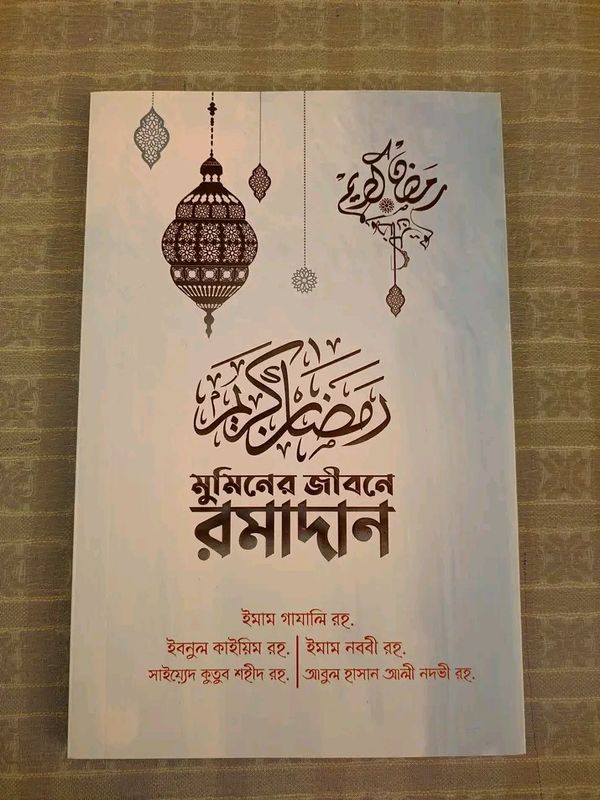 رمضان كريم
رمضان كريم
মুমিনের জীবনে
রমাদান
ইমাম গাযালি রহ.
ইবনুল কাইয়িম রহ. | ইমাম নববী রহ.
সাইয়্যেদ কুতুব শহীদ রহ. | আবুল হাসান আলী নদভী রহ.